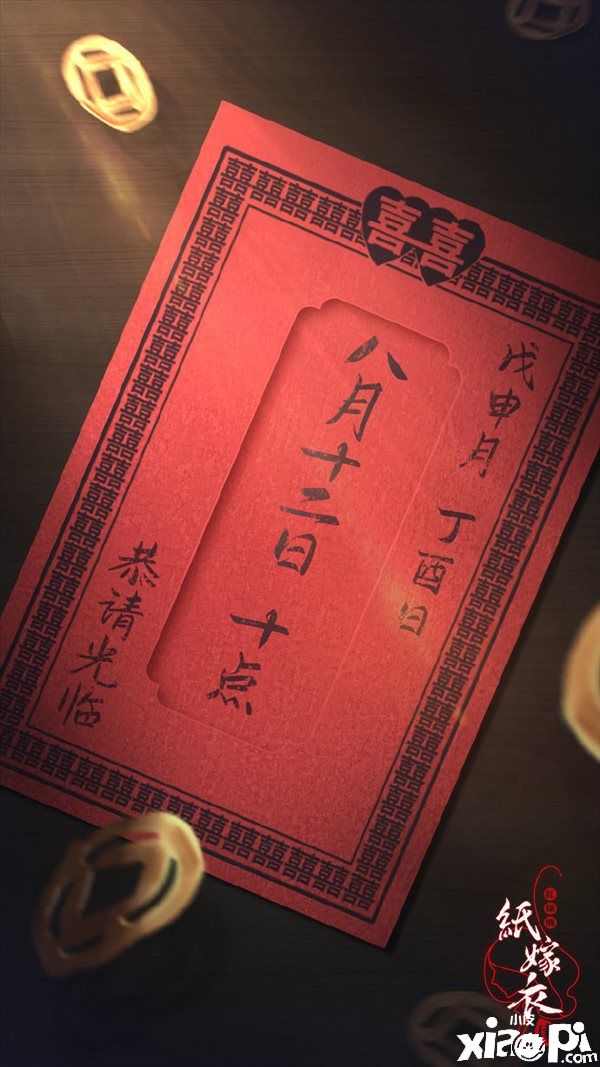 囍
戊申月 丁酉日
八月十二日 十点
恭请光临
紙嫁衣
小皮
xiaopi.com